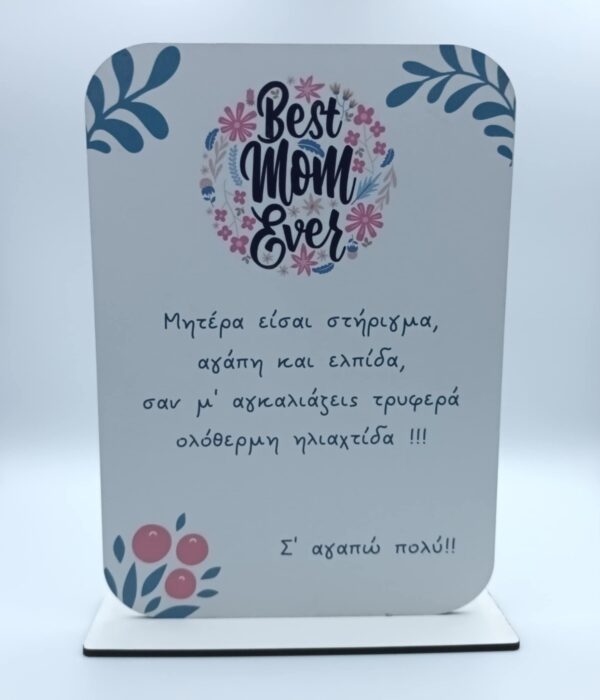 Best
Mom
Ever
Μητέρα είσαι στήριγμα,
αγάπη και ελπίδα,
σαν μ' αγκαλιάζεις τρυφερά
ολόθερμη ηλιαχτίδα !!!
Σ' αγαπώ πολύ!!